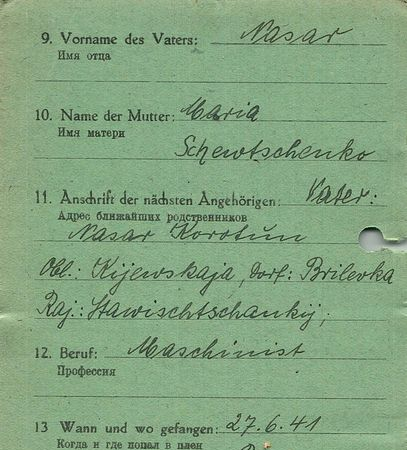 9. Vorname des Vaters: Nasar
Имя отца
10. Name der Mutter: Maria
Имя матери
Schewtschenko
11. Anschrift der nächsten Angehörigen: Vater:
Адрес ближайших родственников
Nasar Korotun
Obl.: Kijewskaja, Dorf: Brilevka
Raj.: Stawischtschankij;
12. Beruf: Maschinist
Профессия
13 Wann und wo gefangen: 27.6.41
Когда и где попал в плен